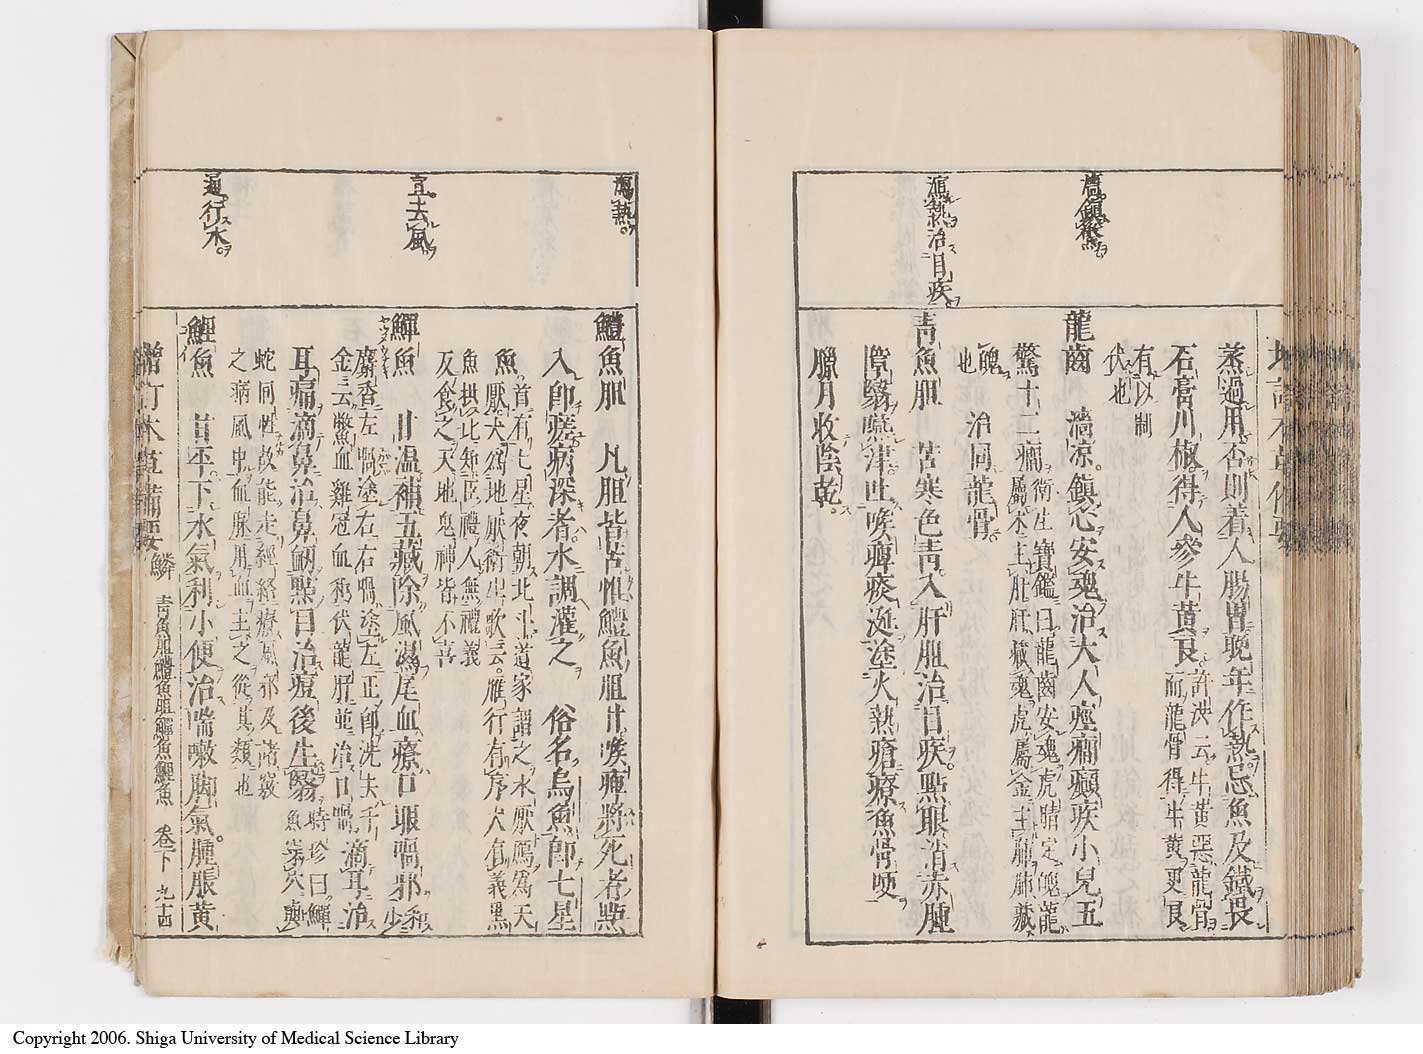 蒸過用否則着人腸胃晩年作熱忌魚及鐵畏
石膏川椒得人參牛黃良許洪云牛黃惡龍骨
而龍骨得牛黃更良
有以制
伏也
龍齒 濇涼。鎮心安魂治大人痙癇癲疾小兒五
驚十二癇衛生寶鑑曰龍齒安魂虎睛定魄龍
屬木主肝肝藏魂虎屬金主肺肺藏
魄
也 治同龍骨
瀉熱治目疾
青魚胆 苦寒色青入肝胆治目疾點眼消赤腫
障翳嚥津吐喉痺痰涎塗火熱瘡療魚骨哽
臘月收陰乾。
瀉熱。
鱧魚胆 凡胆皆苦惟鱧魚胆甘喉痺將死者點
入即瘥病深者水調灌之 俗名烏魚即七星
魚首有七星夜朝北斗道家謂之水厭鴈為天
厭犬為地厭衛生歌云。雁行有序犬有義黑
魚拱北知臣禮人無禮義
反食之天地鬼神皆不喜
宣去風
鱓魚 甘温補五藏除風濕尾血療口眼喎邪和少
麝香左喎塗右右喎塗左正即洗去千
金云鱉血雞冠血和伏龍肝並治口喎滴耳治
耳痛滴鼻治鼻衂點目治痘後生翳時珍曰鱓
魚善穴與
蛇同性故能走經絡療風邪及諸竅
之病風中血脉用血主之從其類也
通行水。
鯉魚 甘平下水氣利小便治喘嗽脚氣。腫脹黃
增訂本草備要 鱗 青魚胆鱧魚胆鱓魚鯉魚 卷下 九十四
Copyright 2006. Shiga University of Medical Science Library